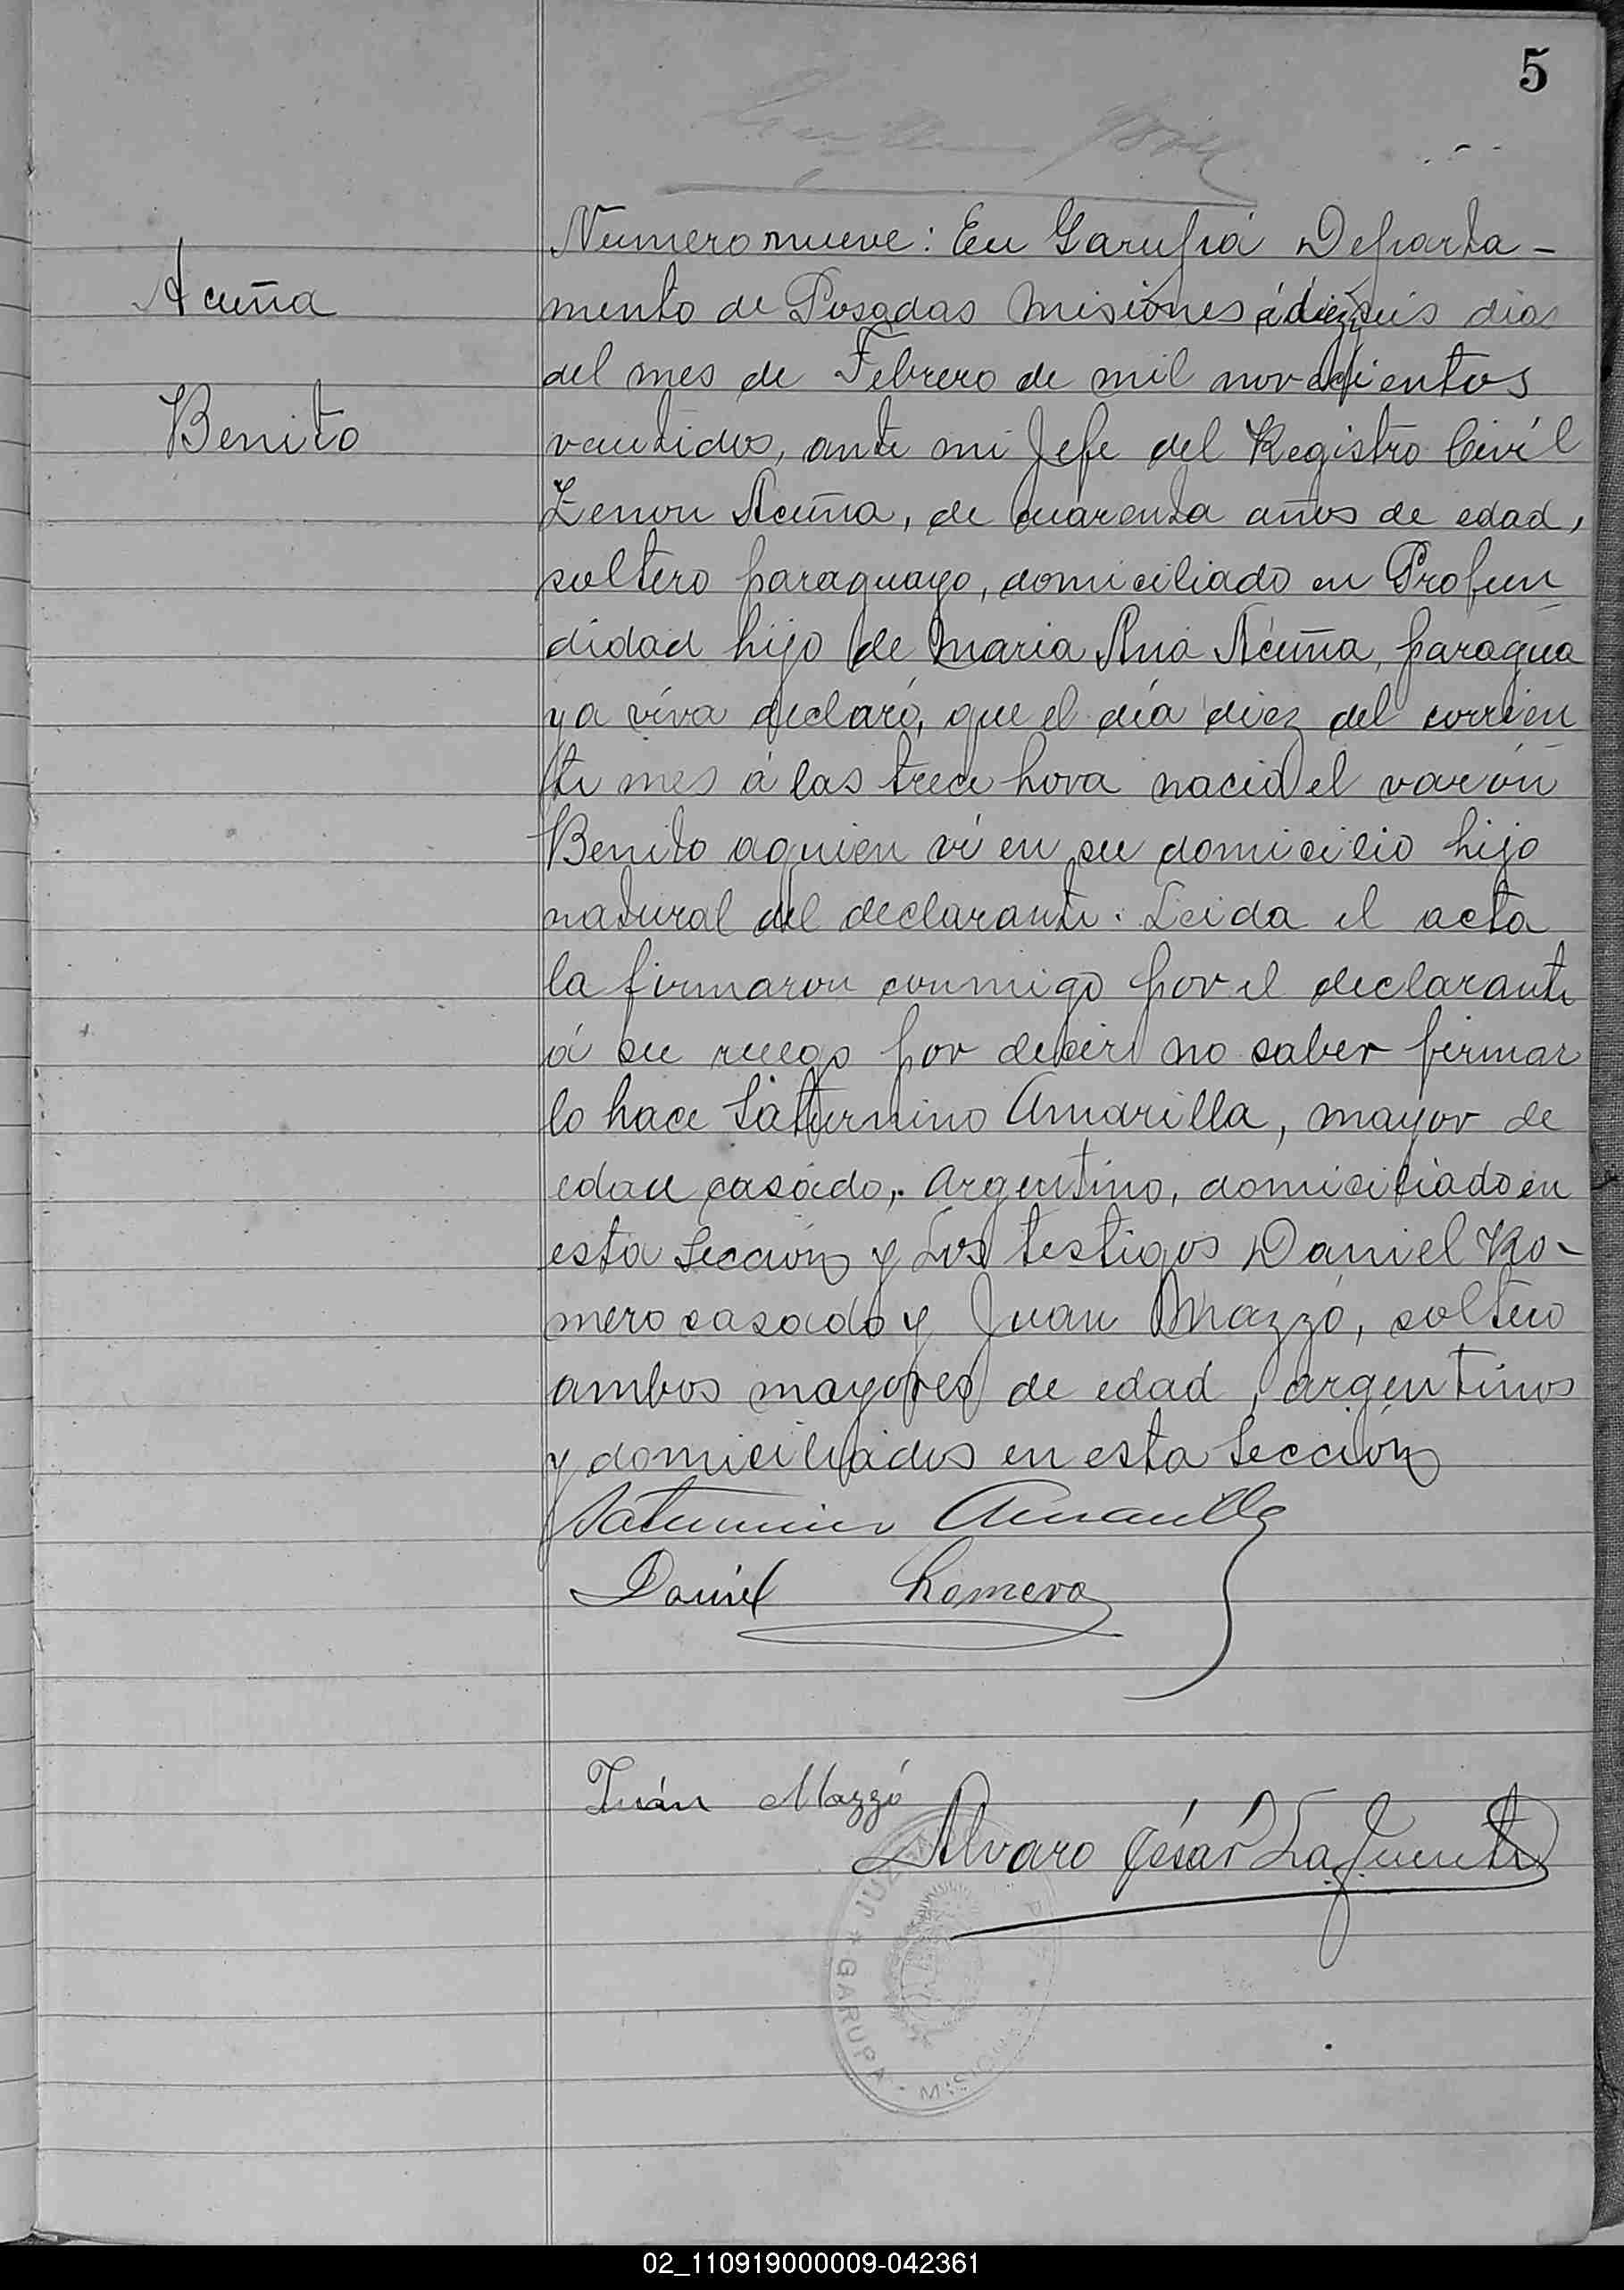 5
Acuña
Benito
Numero nueve: En Garupá Departa-
mento de Posadas Misiones á diez seis dias
del mes de Febrero de mil novecientos
veintidos, ante mi Jefe del Registro Civil
Zenon Acuña, de cuarenta años de edad,
soltero paraguayo, domiciliado en Profun
didad hijo de Maria Ana Acuña, paragua
ya viva declaró, que el día diez del corrien
te mes á las trece hora nació el varón
Benito aquien ví en su domicilio hijo
natural del declarante. Leida el acta
la firmaron conmigo por el declarante
á su ruego por decir no saber firmar
lo hace Saturnino Amarilla, mayor de
edad casado, argentino, domiciliado en
esta Sección y Los testigos Daniel Ro-
mero casado y Juan Mazzó, soltero
ambos mayores de edad, argentinos
y domiciliados en esta Sección
Saturnino Amarilla
Daniel Romero
Juán Mazzó
Alvaro César Lafuente
JUZ
* GARUPA - MISIONES *
02_110919000009-042361